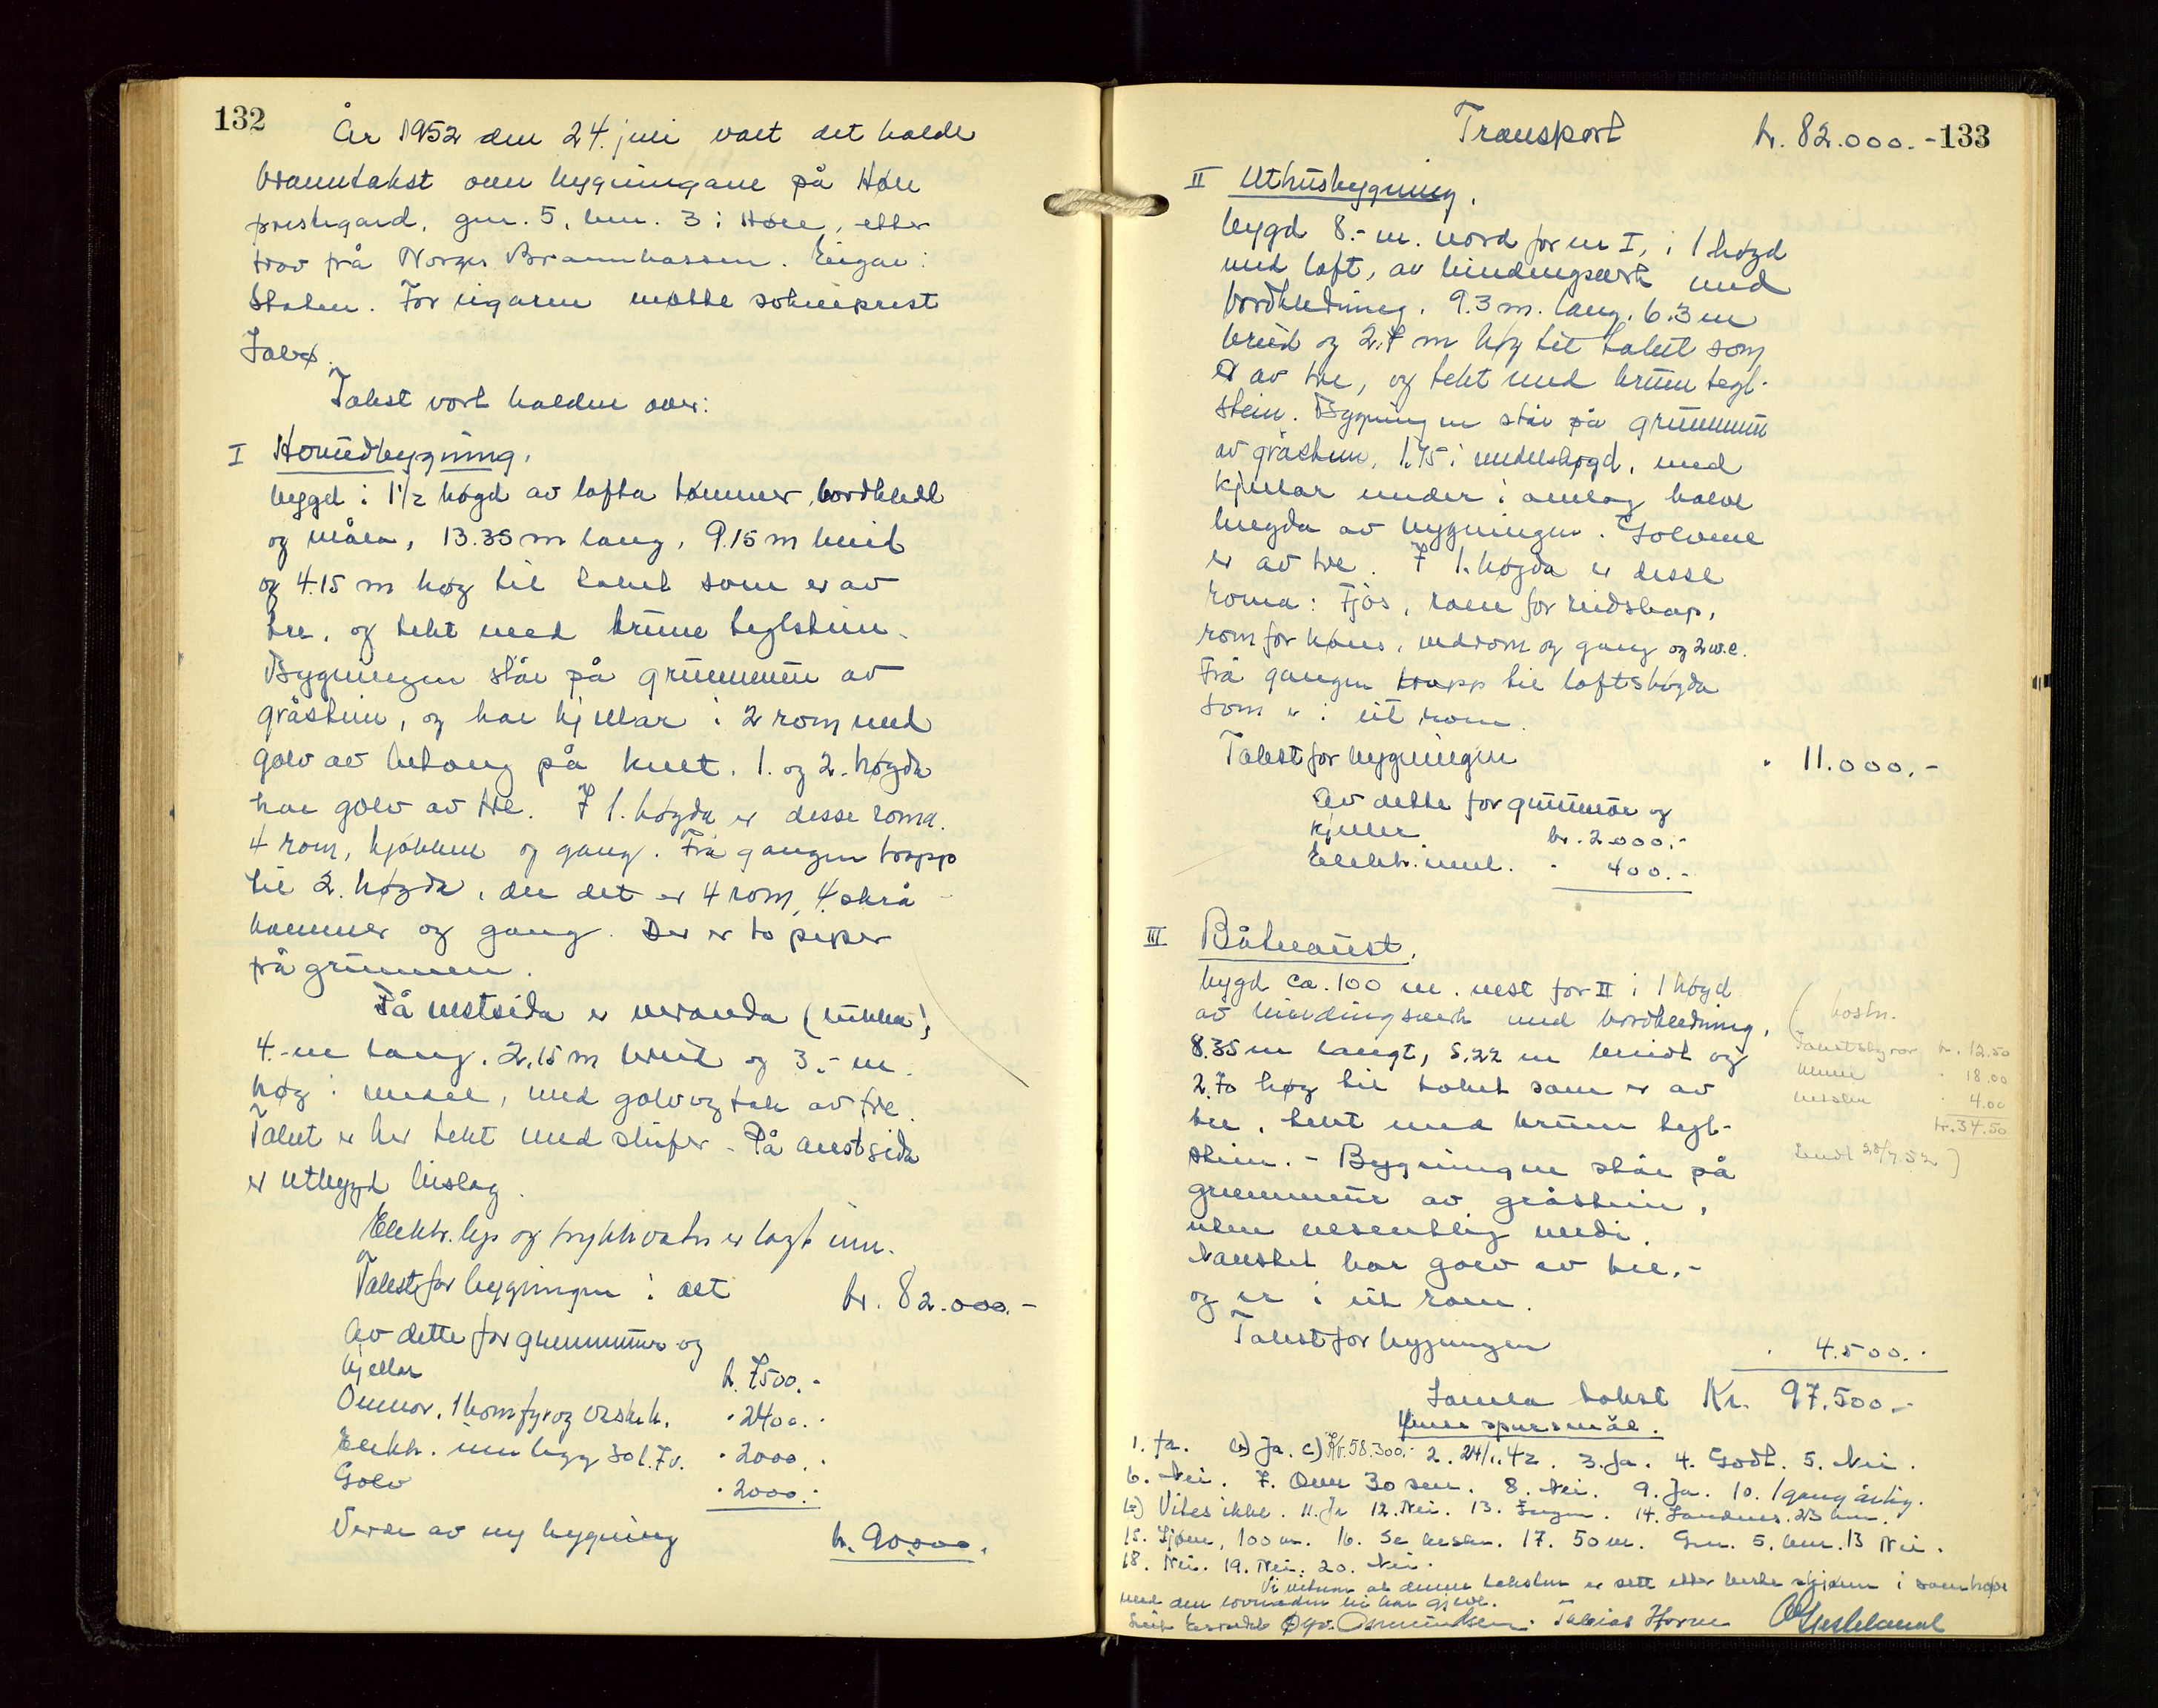 132
År 1952 den 24. juli vart det halde
branntakst over bygningane på Høle
prestegard, gnr. 5, bnr. 3 i Høle, etter
krav frå Norges Brannkassen. Eigar:
Staten. For eigaren møtte sokneprest
Takst vart halden over:
I Hovudbygning.
byggd i 1 1/2 høgd av lafta tømmer, bordkledd
og måla, 13.35 m lang, 9.15 m breid
og 4.15 m høg til taket som er av
tre, og tekt med brune teglstein.
Bygningen står på grunnmur av
gråstein, og har kjellar i 2 rom med
golv av betong på kult. 1. og 2. høgda
har golv av tre. I 1. høgda er desse roma.
4 rom, kjøkken og gang. Frå gangen trapp
til 2. høgda, der det er 4 rom, 4 skrå
kammer og gang. Der er to piper
frå grunnen.
På vestsida er veranda (lukka),
4.- m lang, 2,15 m breid og 3.- m.
høg i medel, med golv og tak av tre.
Taket er her tekt med skifer. - På austsida
er utbygd bislag.
Elektr. lys og trykkvatn er lagt inn.
Takst for bygningen i alt kr. 82.000.-
Av dette for grunnmur og
kjellar kr. 7500.-
Omnar, 1 komfyr og vaskek. " 2400.-
Elektr. innlegg 30 l. Fv. " 2000.-
Golv " 2000.-
Verde av ny bygning kr. 90.000.
Transport kr. 82.000.- 133
II Uthusbygning.
bygd 8.- m. nord for nr I, i 1 høgd
med loft, av bindingsverk med
bordkledning. 9.3 m. lang, 6.3 m
breid og 2.7 m høg til taket som
er av tre, og tekt med brun tegl-
stein. Bygningen står på grunnmur
av gråstein, 1.75 i medelshøgd, med
kjellar under i omlag halve
lengda av bygningen. Golvene
er av tre. I 1. høgda er desse
roma: Fjøs, rom for reidskap,
rom for høns, vedrom og gang og 2 w.c.
Frå gangen trapp til loftshøgda
som er i eit rom.
Takst for bygningen " 11.000.-
Av dette for grunnmur og
kjeller kr. 2.000.-
Elektr. innl. " 400.-
III Båtnaust.
bygd ca. 100 m. vest for II i 1 høgd
av bindingsverk med bordkledning,
8.35 m langt, 5,22 m breidt og
2.70 høg til taket som er av
tre, tekt med brun tegl-
stein. - Bygningen står på
grunnmur av gråstein,
uten vesentlig verdi.
Naustet har golv av tre, -
og er i eit rom.
Takst for bygningen " 4.500.-
(kostn.
kr. 12.50
" 18.00
" 4.00
kr. 34.50
Sendt 28/7.52)
Samla takst Kr. 97.500.-
spursmål.
1. Ja. b) Ja. c) Kr. 58.300.- 2. 24/1.42. 3. Ja. 4. Godt. 5. Nei.
6. Nei. 7. Over 30 sm. 8. Nei. 9. Ja. 10. 1 gang årlig.
b) Vites ikke. 11. Ja 12. Nei. 13. Ingen. 14. Sandnes, 23 km.
15. Sjøen, 100 m. 16. Se beskr. 17. 50 m. Gnr. 5, bnr. 13 Nei.
18. Nei. 19. Nei. 20. Nei.
Vi vitnar at denne taksten er sett etter beste skjønn i samhøve
med den lovnaden vi har gjeve.
Osmundsen. Tobias